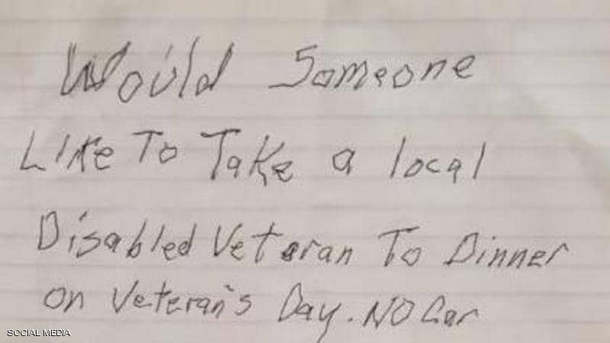 Would Someone
Like To Take a local
Disabled Veteran To Dinner
on Veteran's Day. NO Car
SOCIAL MEDIA